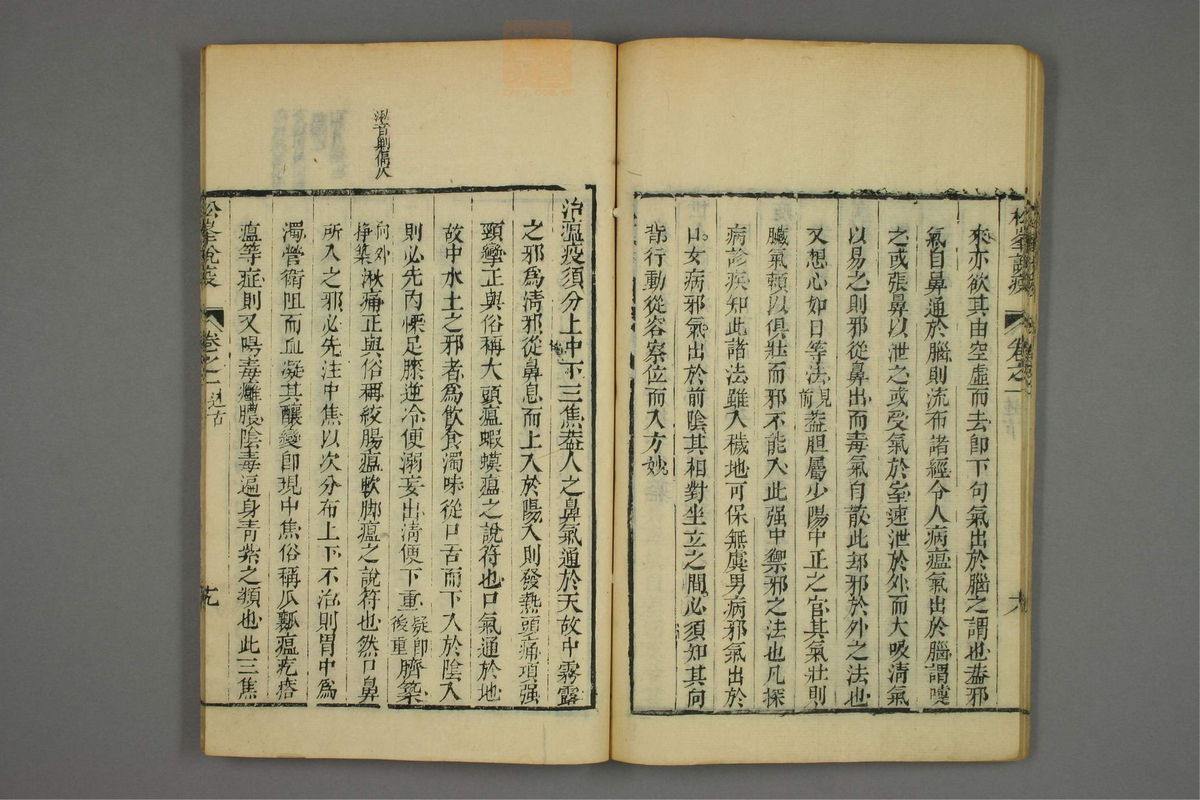 來亦欲其由空虛而去卽下句氣出於腦之謂也葢邪
氣自鼻通於腦則流布諸經令人病瘟氣出於腦謂嚏
之或張鼻以泄之或受氣於室速泄於外而大吸清氣
以易之則邪從鼻出而毒氣自散此却邪於外之法也
又想心如日等法見前葢胆屬少陽中正之官其氣壯則
臟氣賴以俱壯而邪不能入此强中禦邪之法也凡探
病診疾知此諸法雖入穢地可保無虞男病邪氣出於
口女病邪氣出於前陰其相對坐立之間必須知其向
背行動從容察位而入方妙
松峯說疫
卷之一
述古
大
治瘟疫須分上中下三焦葢人之鼻氣通於天故中霧露
之邪爲清邪從鼻息而上入於陽入則發熱頭痛項强
頸攣正與俗稱大頭瘟蝦蟆瘟之說符也口氣通於地
故中水土之邪者爲飲食濁味從口舌而下入於陰入
則必先內慄足膝逆冷便溺妄出清便下重疑卽後重臍築
向外掙築湫痛正與俗稱絞腸瘟軟脚瘟之說符也然口鼻
所入之邪必先注中焦以次分布上下不治則胃中爲
濁營衛阻而血凝其釀變卽現中焦俗稱瓜瓤瘟疙瘩
瘟等症則又陽毒癰膿陰毒遍身青紫之類也此三焦
松峯說疫
卷之一
述古
九